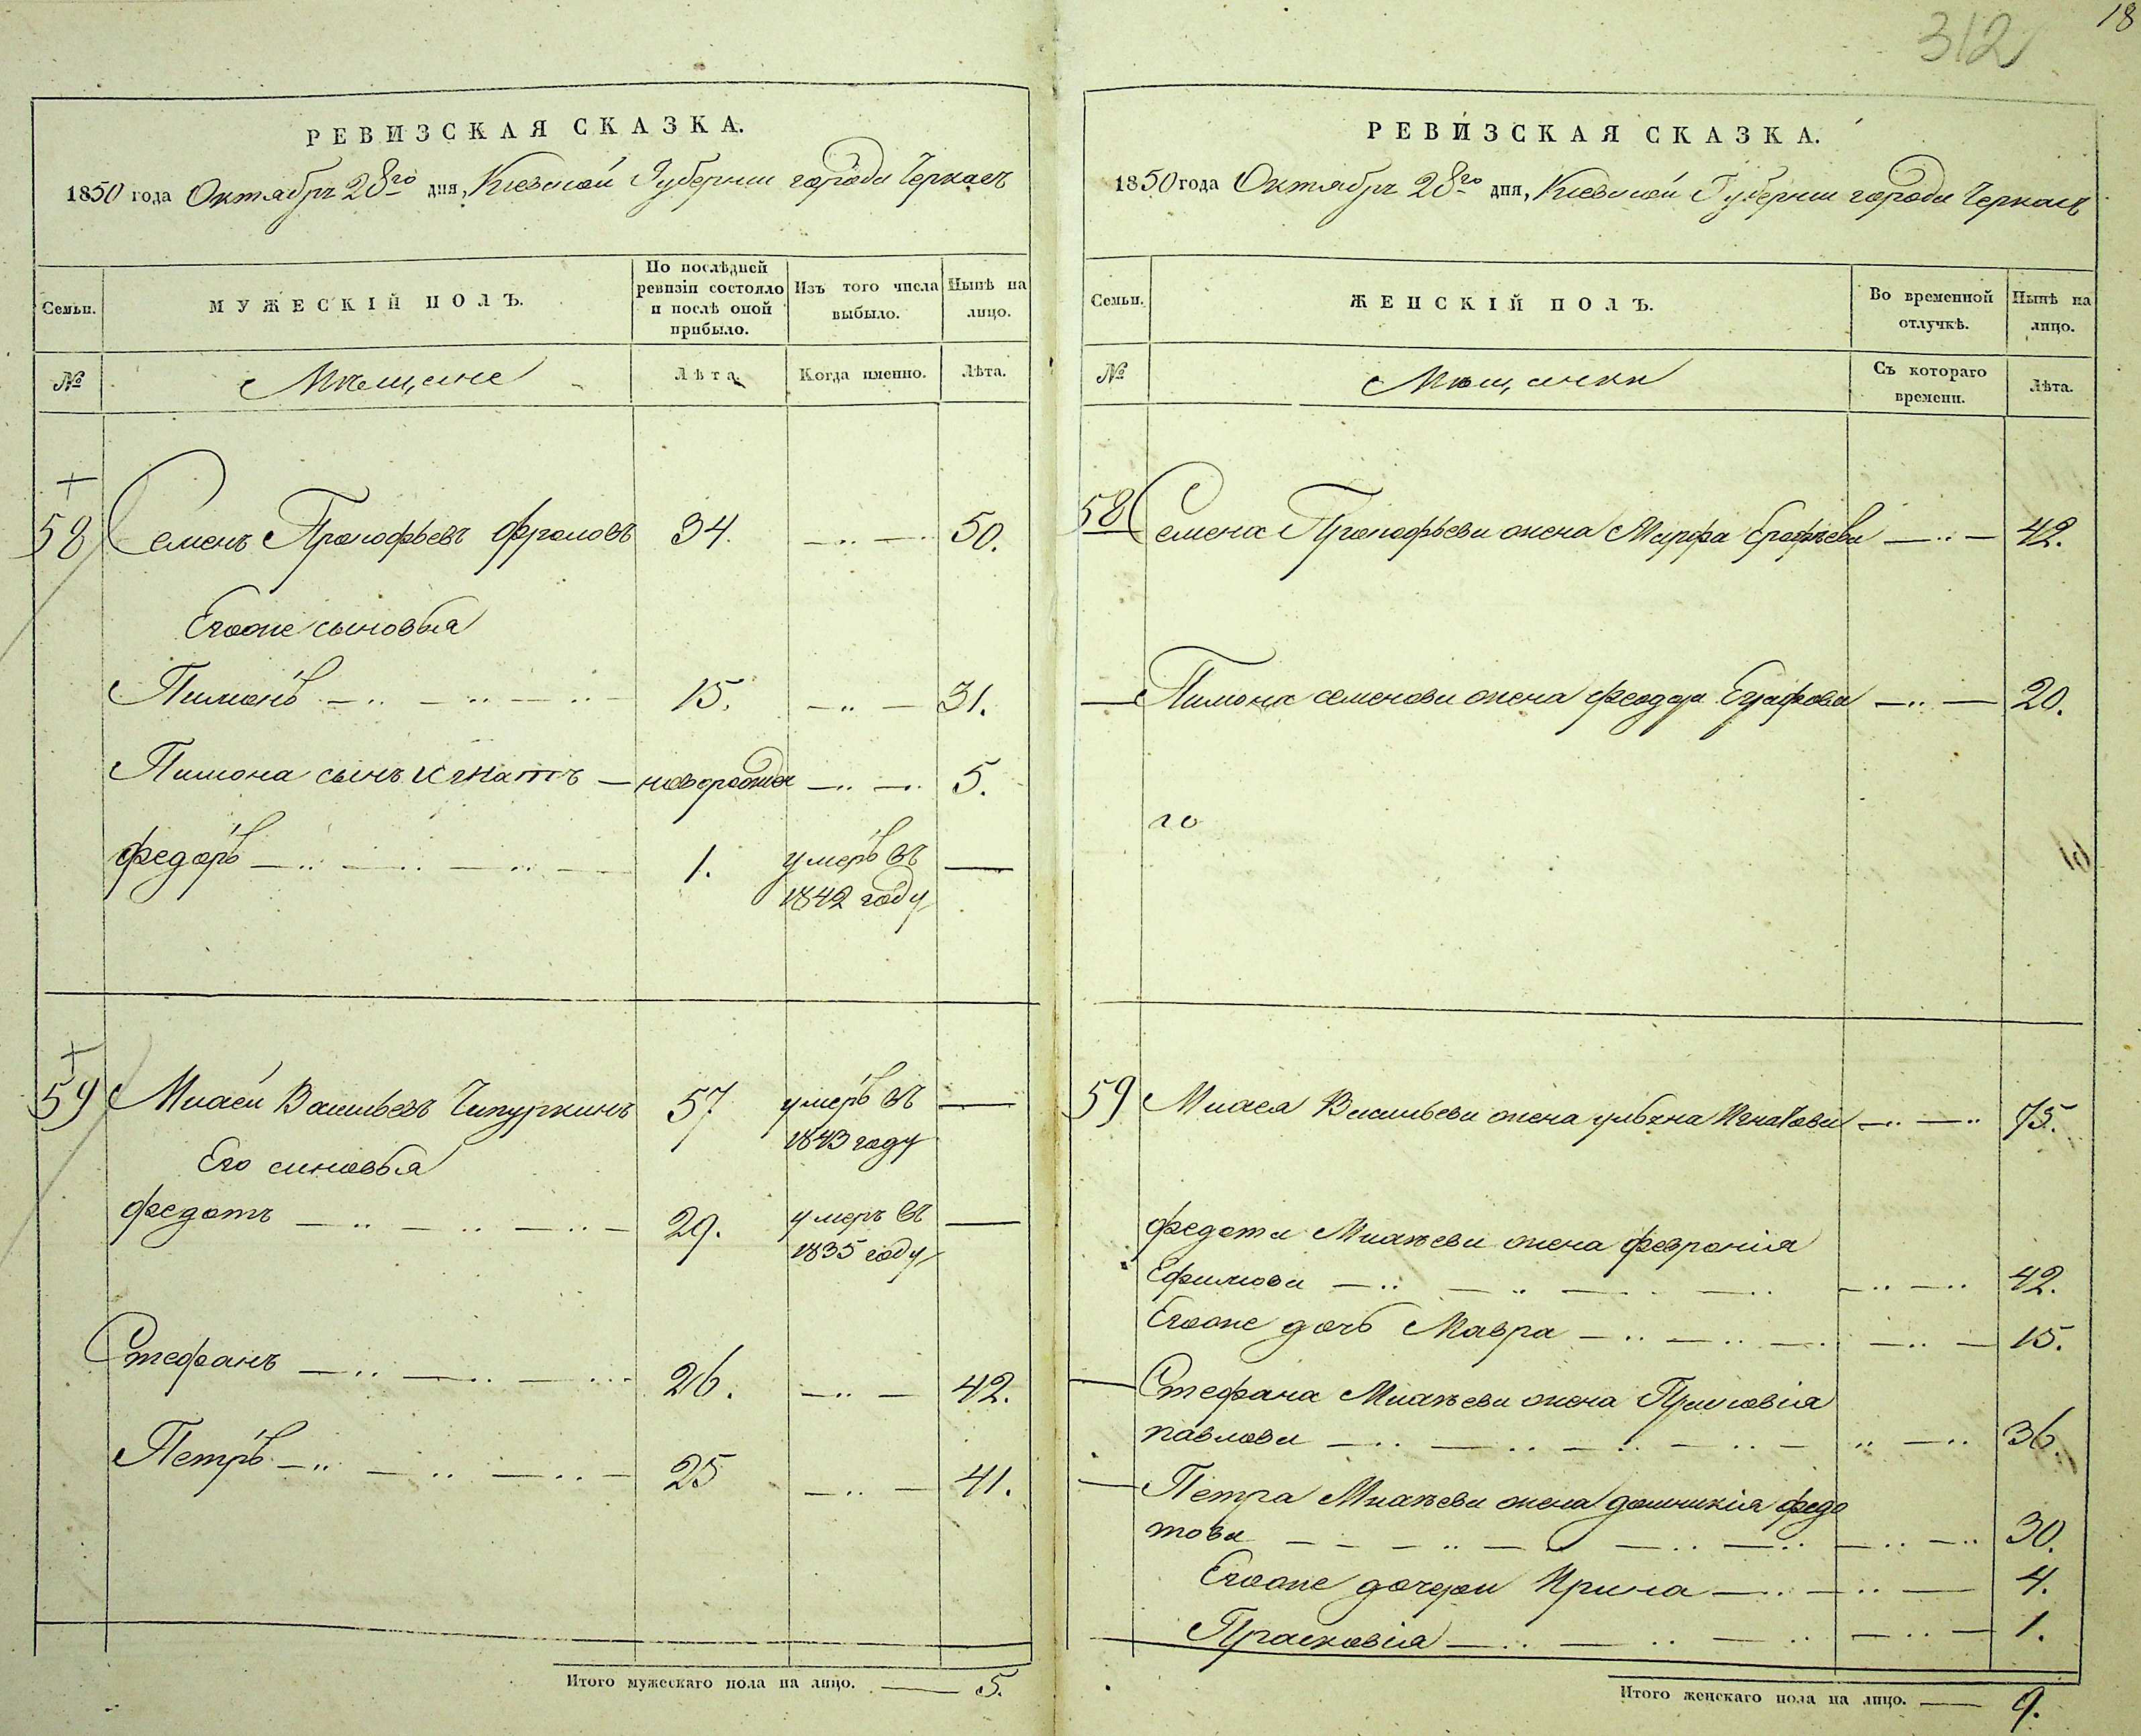 312
18
РЕВИЗСКАЯ СКАЗКА.
1850 года Октября 28го дня, Киевской Губернии города Черкасъ
Семьи.
МУЖЕСКІЙ ПОЛЪ.
По послѣдней ревизіи состояло и послѣ оной прибыло.
Изъ того числа выбыло.
Нынѣ на лицо.
№
Мѣщане
Лѣта.
Когда именно.
Лѣта.
58 Семенъ Прокофьевъ Фроловъ 34. 50.
Егоже сыновья
Пименъ 15. 31.
Пимона сынъ Игнатъ — новорожден 5.
Федоръ 1. умеръ въ —
1842 году
59 Мокей Васильевъ Чепуркинъ 57 умеръ въ —
1843 году
Его сыновья
Федотъ 29. умеръ въ —
1835 году
Стефанъ 26. 42.
Петръ 25 41.
Итого мужескаго пола на лицо. — 5.
РЕВИЗСКАЯ СКАЗКА.
1850 года Октября 28го дня, Киевской Губернии города Черкасъ
Семьи.
ЖЕНСКІЙ ПОЛЪ.
Во временной отлучкѣ.
Нынѣ на лицо.
№
Мѣщанки
Съ котораго времени.
Лѣта.
58 Семена Прокофьева жена Марфа Ерофѣева 42.
Пимона Семенова жена Феодора 20.
го
59 Мокея Васильева жена Ульяна Игнатова 75.
Федота Мокѣева жена Феврония
Ефимова 42.
Егоже дочь Мавра 15.
Стефана Мокѣева жена Прасковія
Павлова 36.
Петра Мокѣева жена Домникія Федо
това 30.
Егоже дочери Ирина 4.
Прасковія 1.
Итого женскаго пола на лицо. — 9.